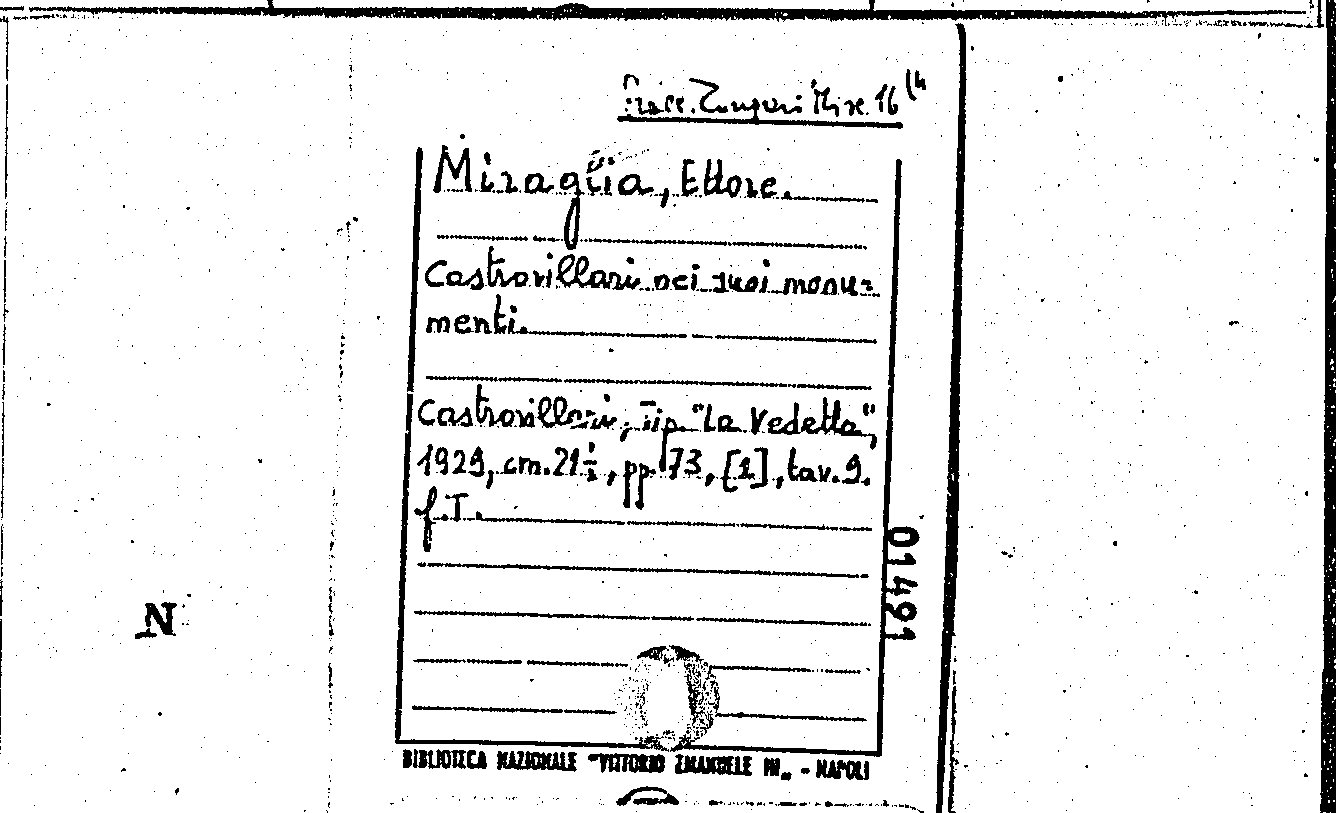 Racc. Zangari Misc. 16 (4
Miraglia, Ettore.
Castrovillari nei suoi monu=
menti.
Castrovillari, Tip. "La Vedetta",
1929, cm. 21½, pp. 73, [1], tav. 9.
f.T.
01491
N
BIBLIOTECA NAZIONALE "VITTORIO EMANUELE III„ - NAPOLI